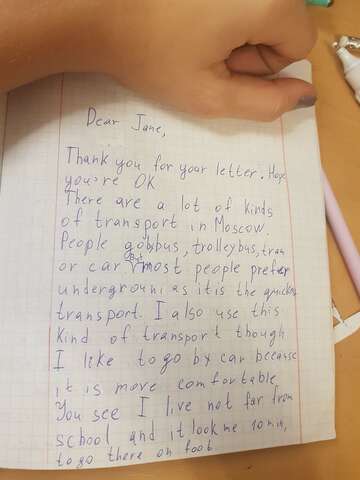 Dear Jane,
Thank you for your letter. Hope
you're OK
There are a lot of kinds
of transport in Moscow.
People go by bus, trolleybus, tram
or car But most people prefer
underground as it is the quickest
transport. I also use this
kind of transport though
I like to go by car because
it is more comfortable
You see I live not far from
school and it took me 10 min,
to go there on foot